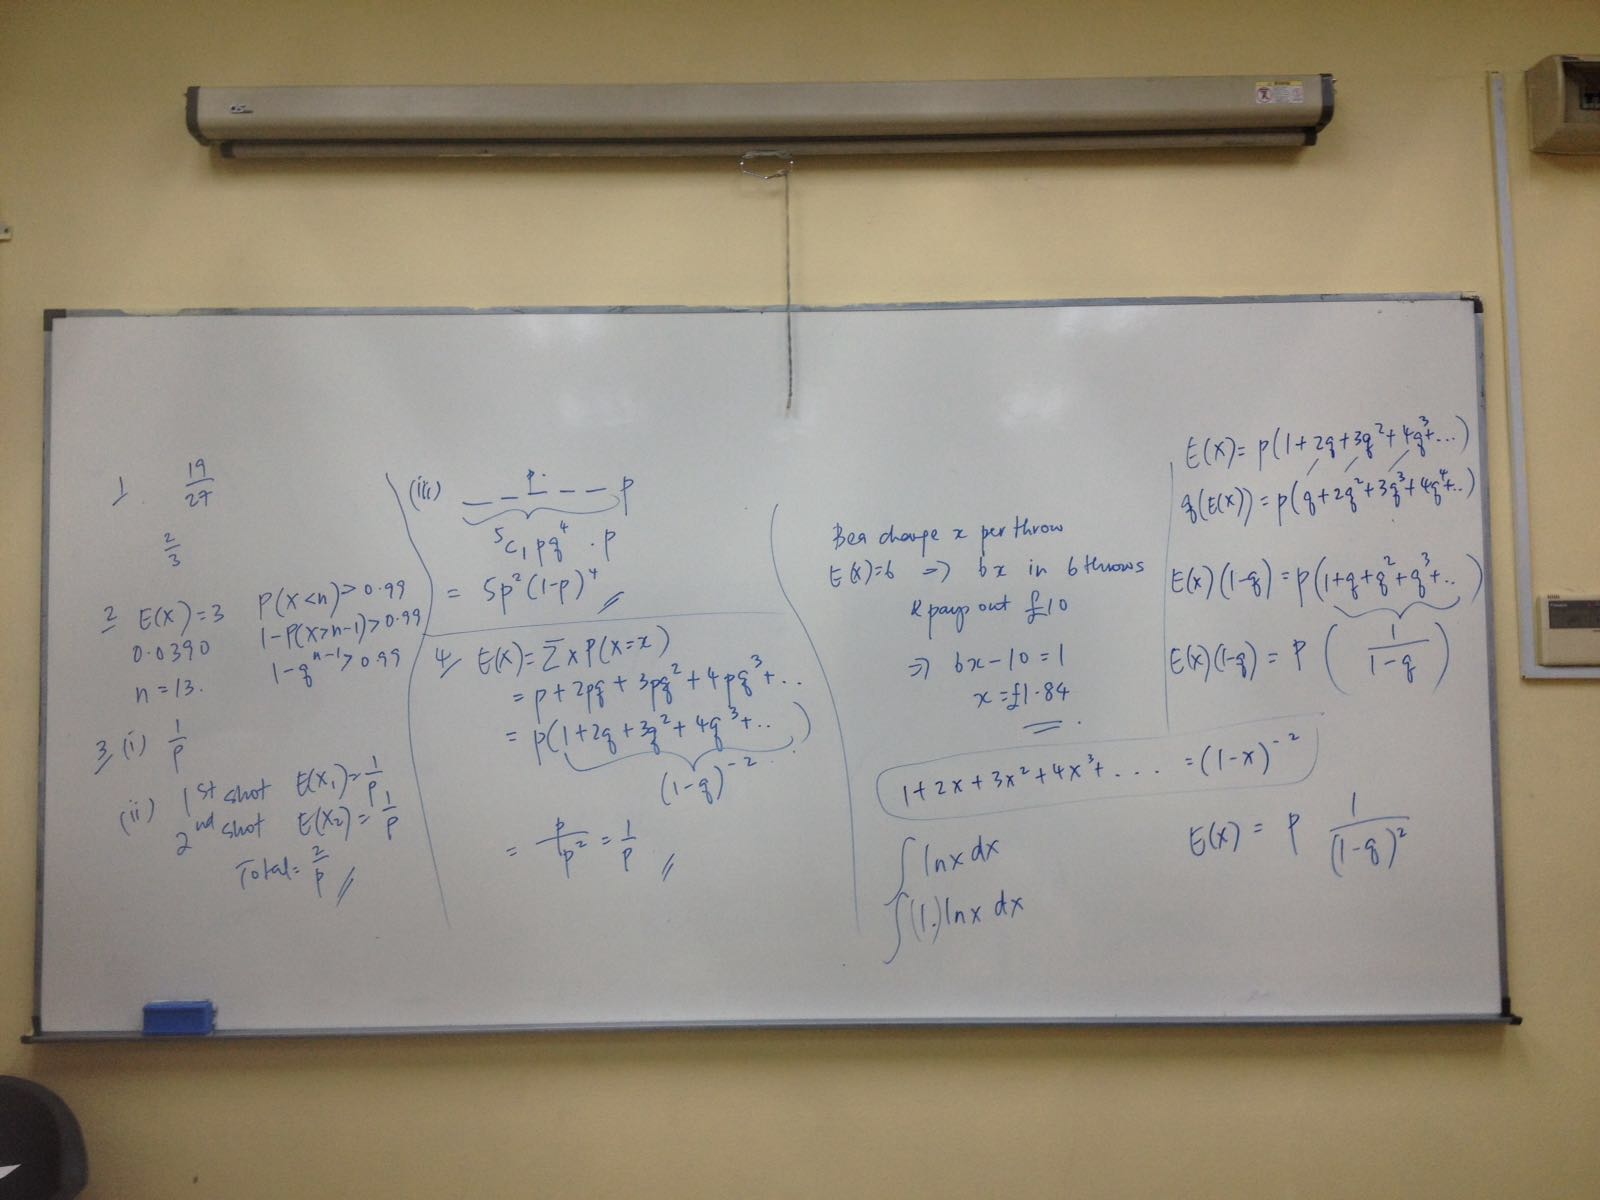 1. 19/27
2/3
2 E(X)=3
0.0390
n=13.
P(X<n)>0.99
1-P(X>n-1)>0.99
1-q^(n-1)>0.99
3 (i) 1/p
(ii) 1st shot E(X₁)=1/p
2nd shot E(X₂)=1/p
Total=2/p
(iii) _ _ p _ _ p
⁵C₁pq⁴.p
= 5p²(1-p)⁴
4 E(X)=ΣxP(X=x)
= p+2pq+3pq²+4pq³+..
= p(1+2q+3q²+4q³+..)
(1-q)^-2
= p/p² = 1/p
Bea charge x per throw
E(X)=6 => 6x in 6 throws
& pays out £10
=> 6x-10=1
x=£1.84
1+2x+3x²+4x³+.... =(1-x)^-2
∫lnxdx
∫(1.)lnx dx
E(X)=p(1+2q+3q²+4q³+...)
q(E(X))=p(q+2q²+3q³+4q⁴+..)
E(X)(1-q)=p(1+q+q²+q³+..)
E(X)(1-q)=p(1/(1-q))
E(X)=p 1/(1-q)²